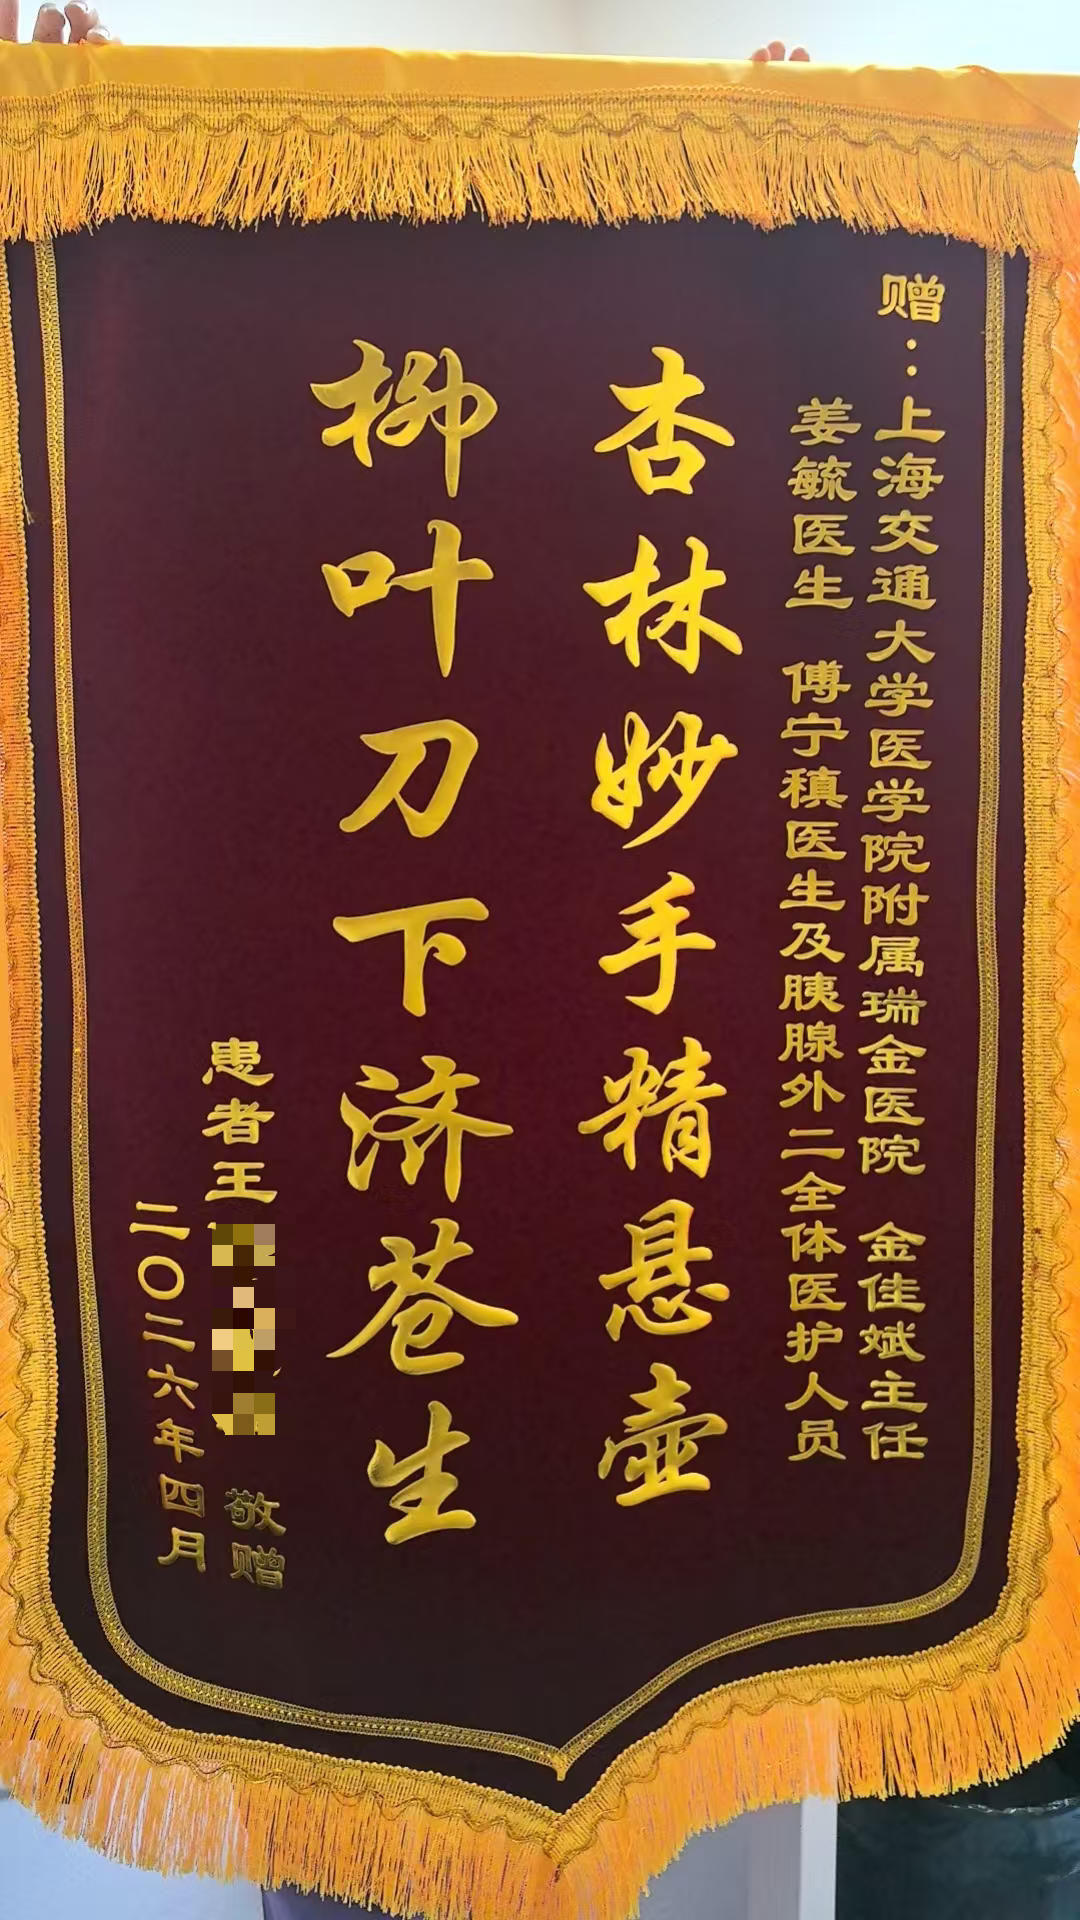 赠：上海交通大学医学院附属瑞金医院 金佳斌主任
姜毓医生 傅宁稹医生及胰腺外二全体医护人员
杏林妙手精悬壶
柳叶刀下济苍生
患者王 敬赠
二〇二六年四月